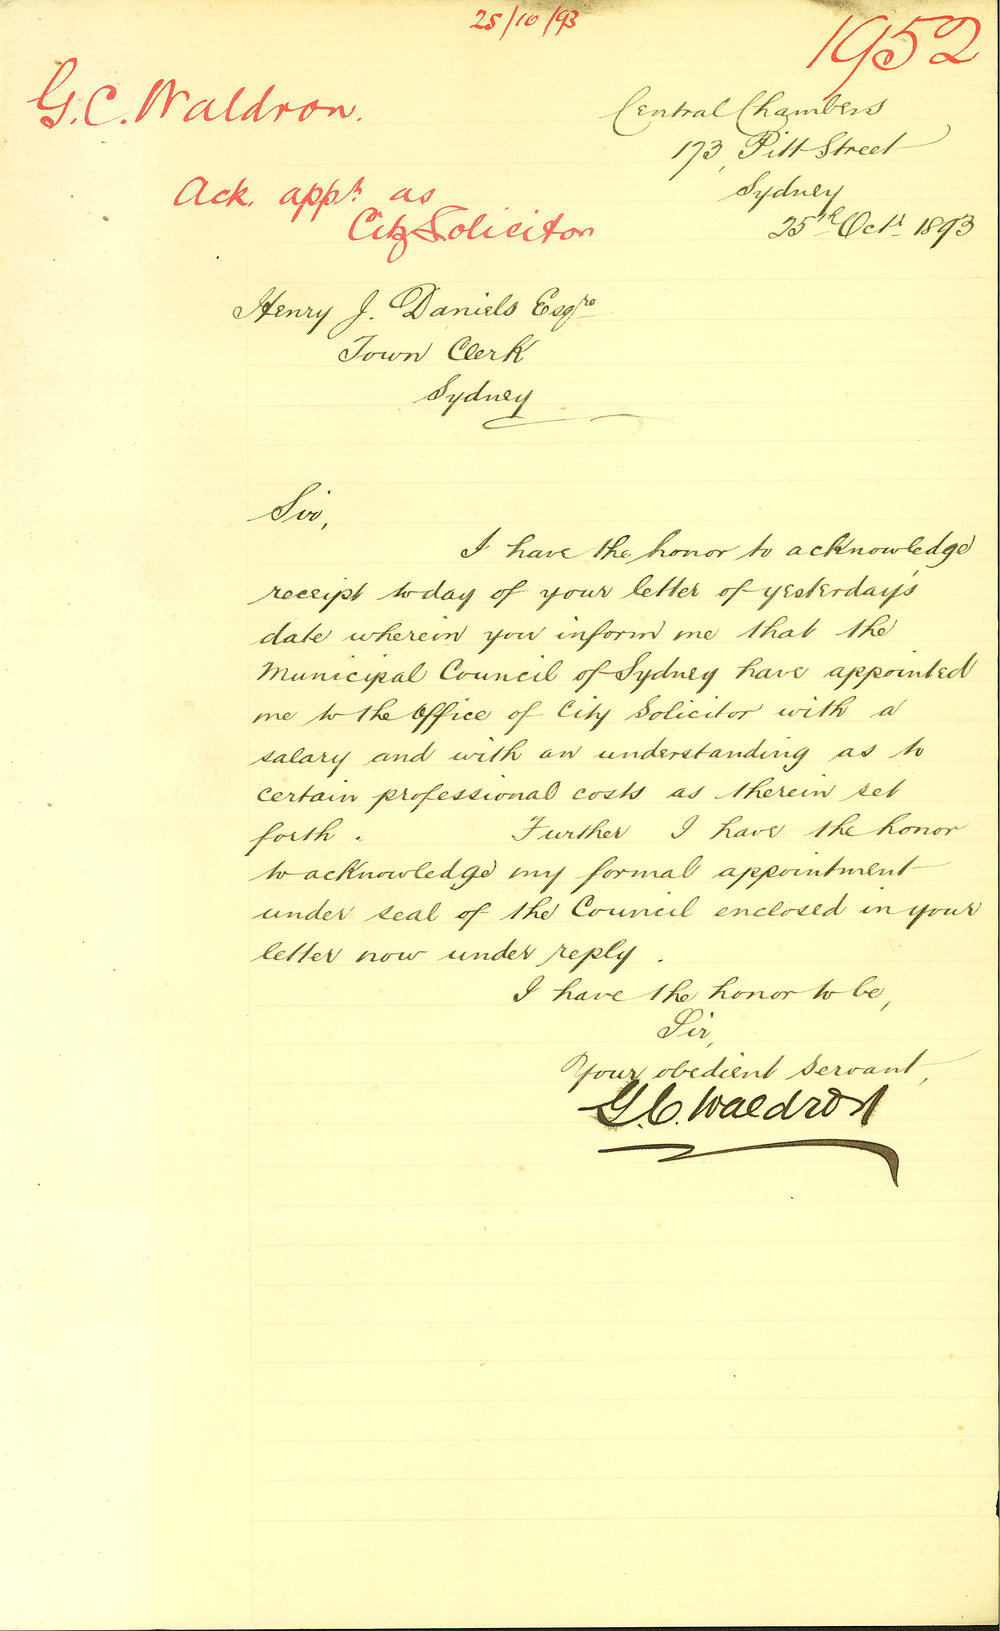 25/10/93
1952
G. C. Waldron.
Central Chambers
173, Pitt Street
Sydney
25th Octr 1893
Ack. appt. as
City Solicitor
Henry J. Daniels Esqre
Town Clerk
Sydney
Sir,
I have the honor to acknowledge
receipt today of your letter of yesterday's
date wherein you inform me that the
Municipal Council of Sydney have appointed
me to the Office of City Solicitor with a
salary and with an understanding as to
certain professional costs as therein set
forth. Further I have the honor
to acknowledge my formal appointment
under seal of the Council enclosed in your
letter now under reply.
I have the honor to be,
Sir,
Your obedient servant,
G. C. Waldron